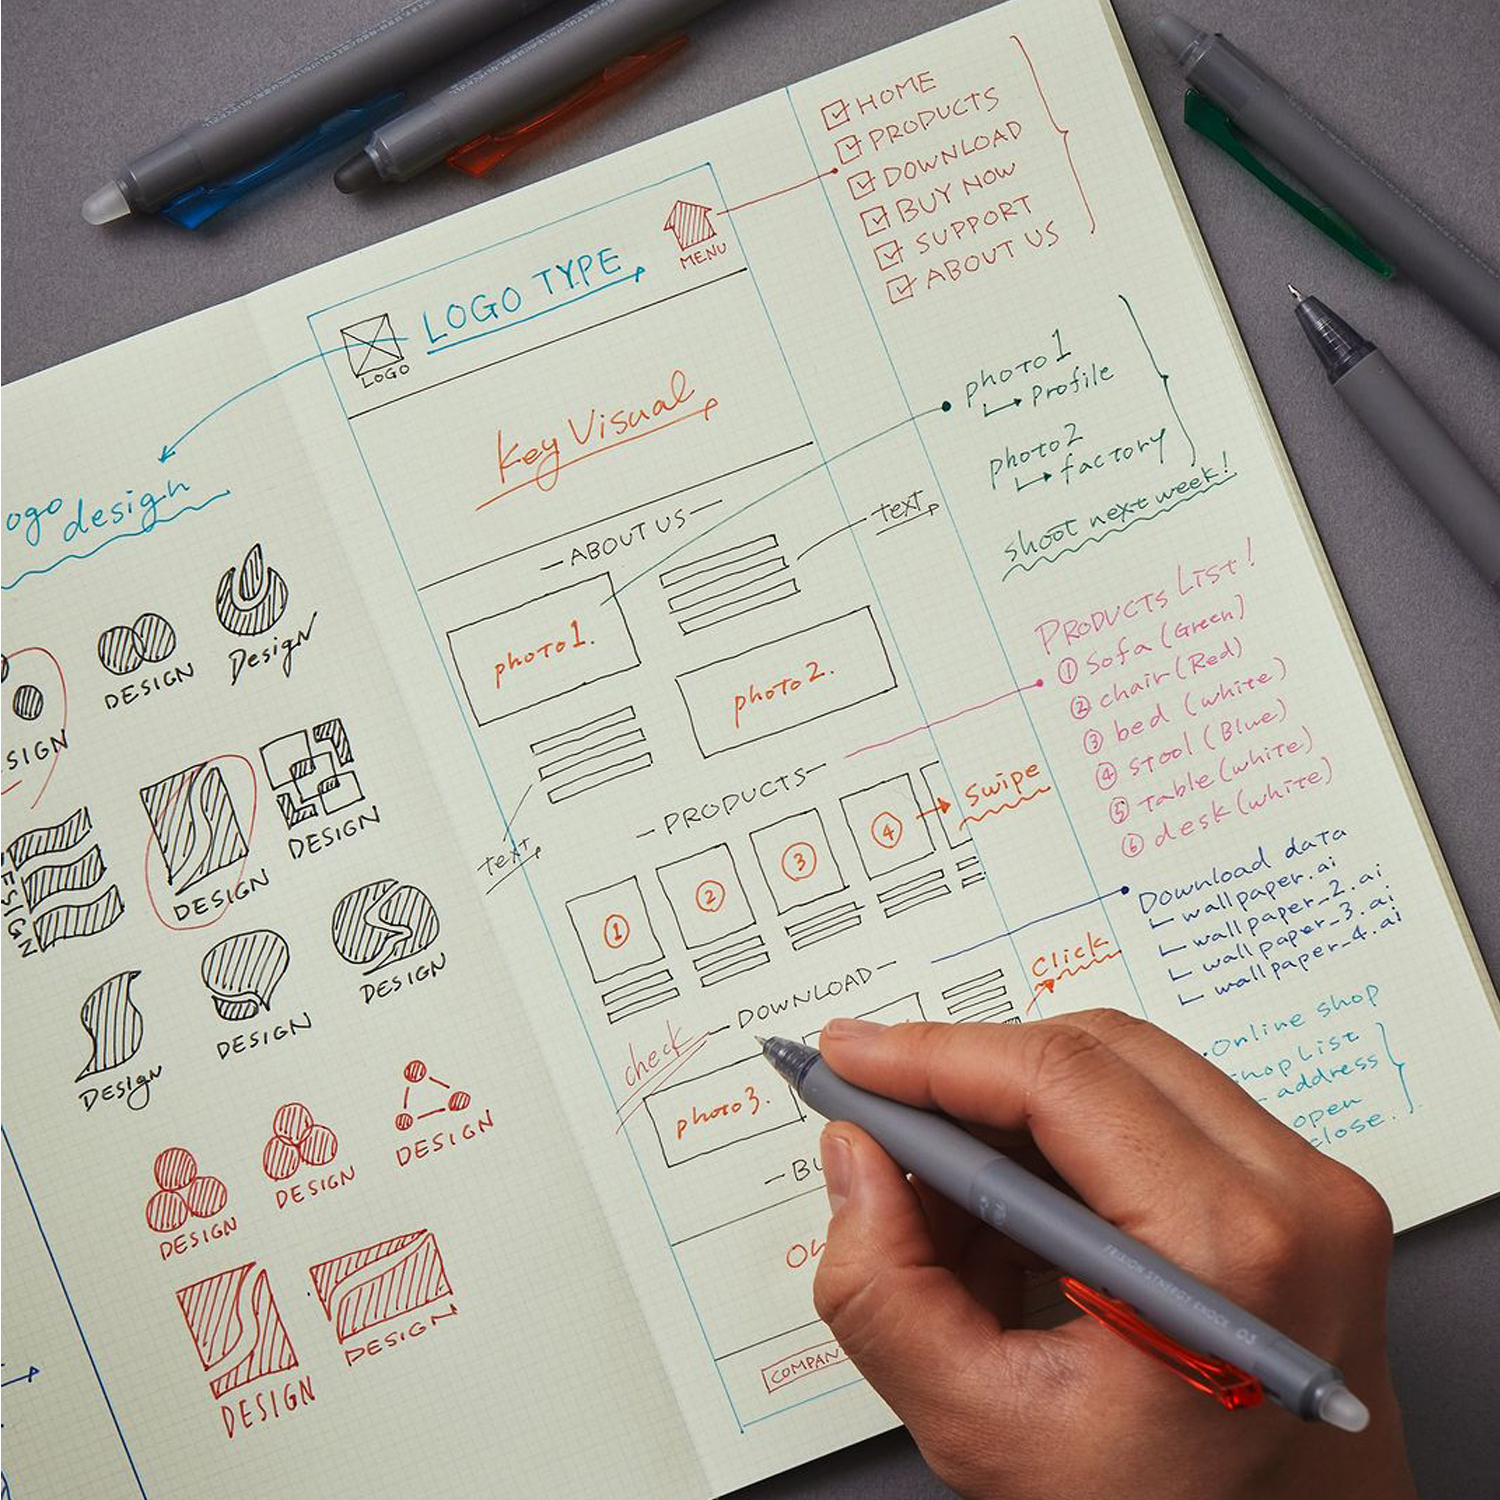 HOME
PRODUCTS
DOWNLOAD
BUY NOW
SUPPORT
ABOUT US
MENU
LOGO TYPE
LOGO
Key Visual
photo1
Profile
photo2
factory
shoot next week!
ABOUT US
text
photo1.
photo2.
text
PRODUCTS
1
2
3
4
Swipe
PRODUCTS LIST!
① Sofa (Green)
② chair (Red)
③ bed (white)
④ stool (Blue)
⑤ table (white)
⑥ desk (white)
Download data
wallpaper.ai
wallpaper_2.ai
wallpaper_3.ai
wallpaper_4.ai
Click
DOWNLOAD
check
photo3.
Online shop
address
open
close.
design
DESIGN
Design
DESIGN
DESIGN
DESIGN
DESIGN
DESIGN
DESIGN
Design
DESIGN
DESIGN
DESIGN
DESIGN
DESIGN
FRIXION SYNERGY KNOCK 03